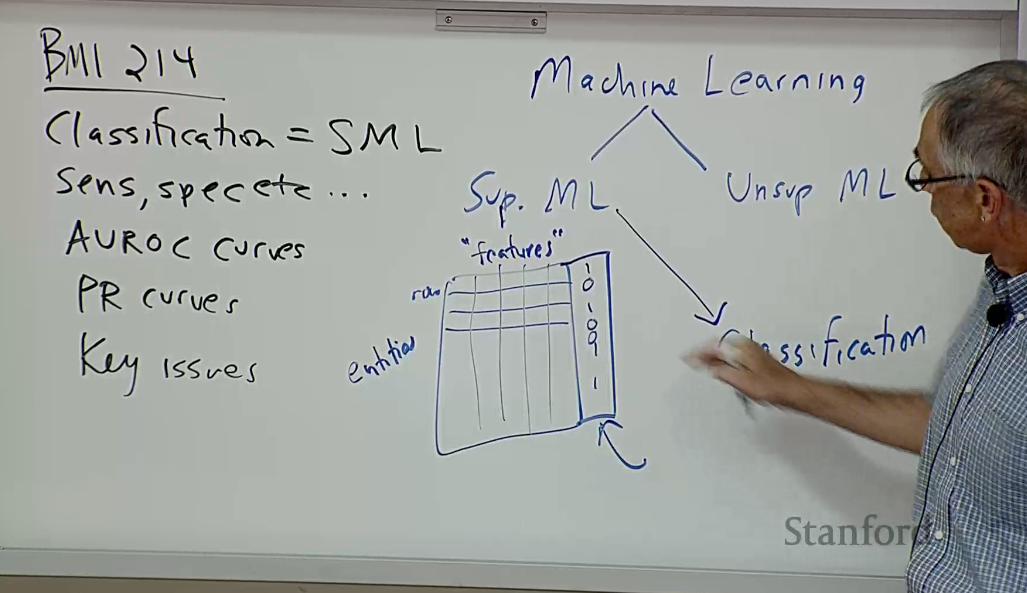 BMI 214
Classification = SML
Sens, spec etc ...
AUROC curves
PR curves
Key issues
Machine Learning
Sup. ML
Unsup ML
"features"
row
entities
1
0
1
0
0
1
1
Classification
Stanford